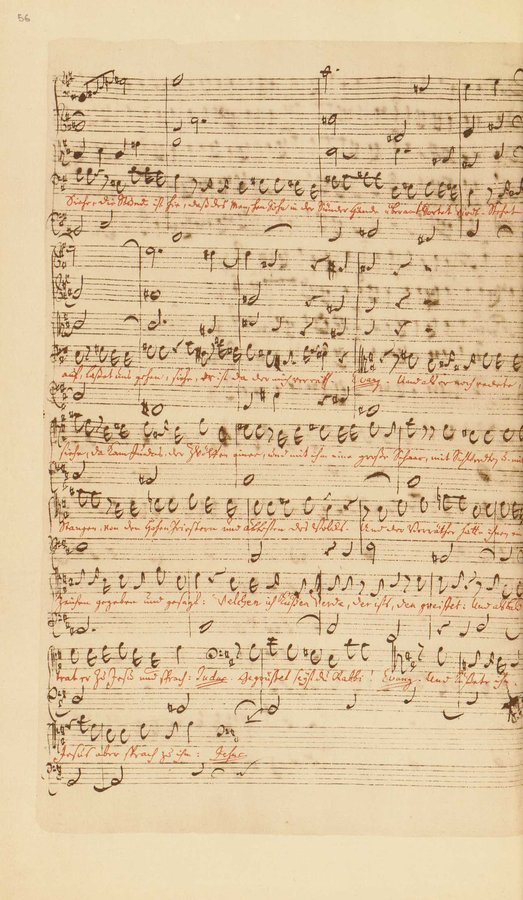 56
Siehe, die Stunde ist hie, daß des Menschen Sohn in der Sünder Hände überantwortet wird. Stehet
auf, laßet uns gehen, siehe, er ist da, der mich verräth. Evang. Und als er noch redete
siehe, da kam Judas, der Zwölfen einer, und mit ihm eine große Schaar, mit Schwerdten, u. mit
Stangen. von den Hohenpriestern und Ältesten des Volks. Und der Verräther hatte ihnen ein
Zeichen gegeben und gesagt: Welchen ich küßen werde, der ists, den greiffet: Und alsbald
trat er zu Jesu und sprach: Judas. Gegrüßet seyst du Rabbi! Evang. Und küßete ihn
Jesus aber sprach zu ihm: Jesus.